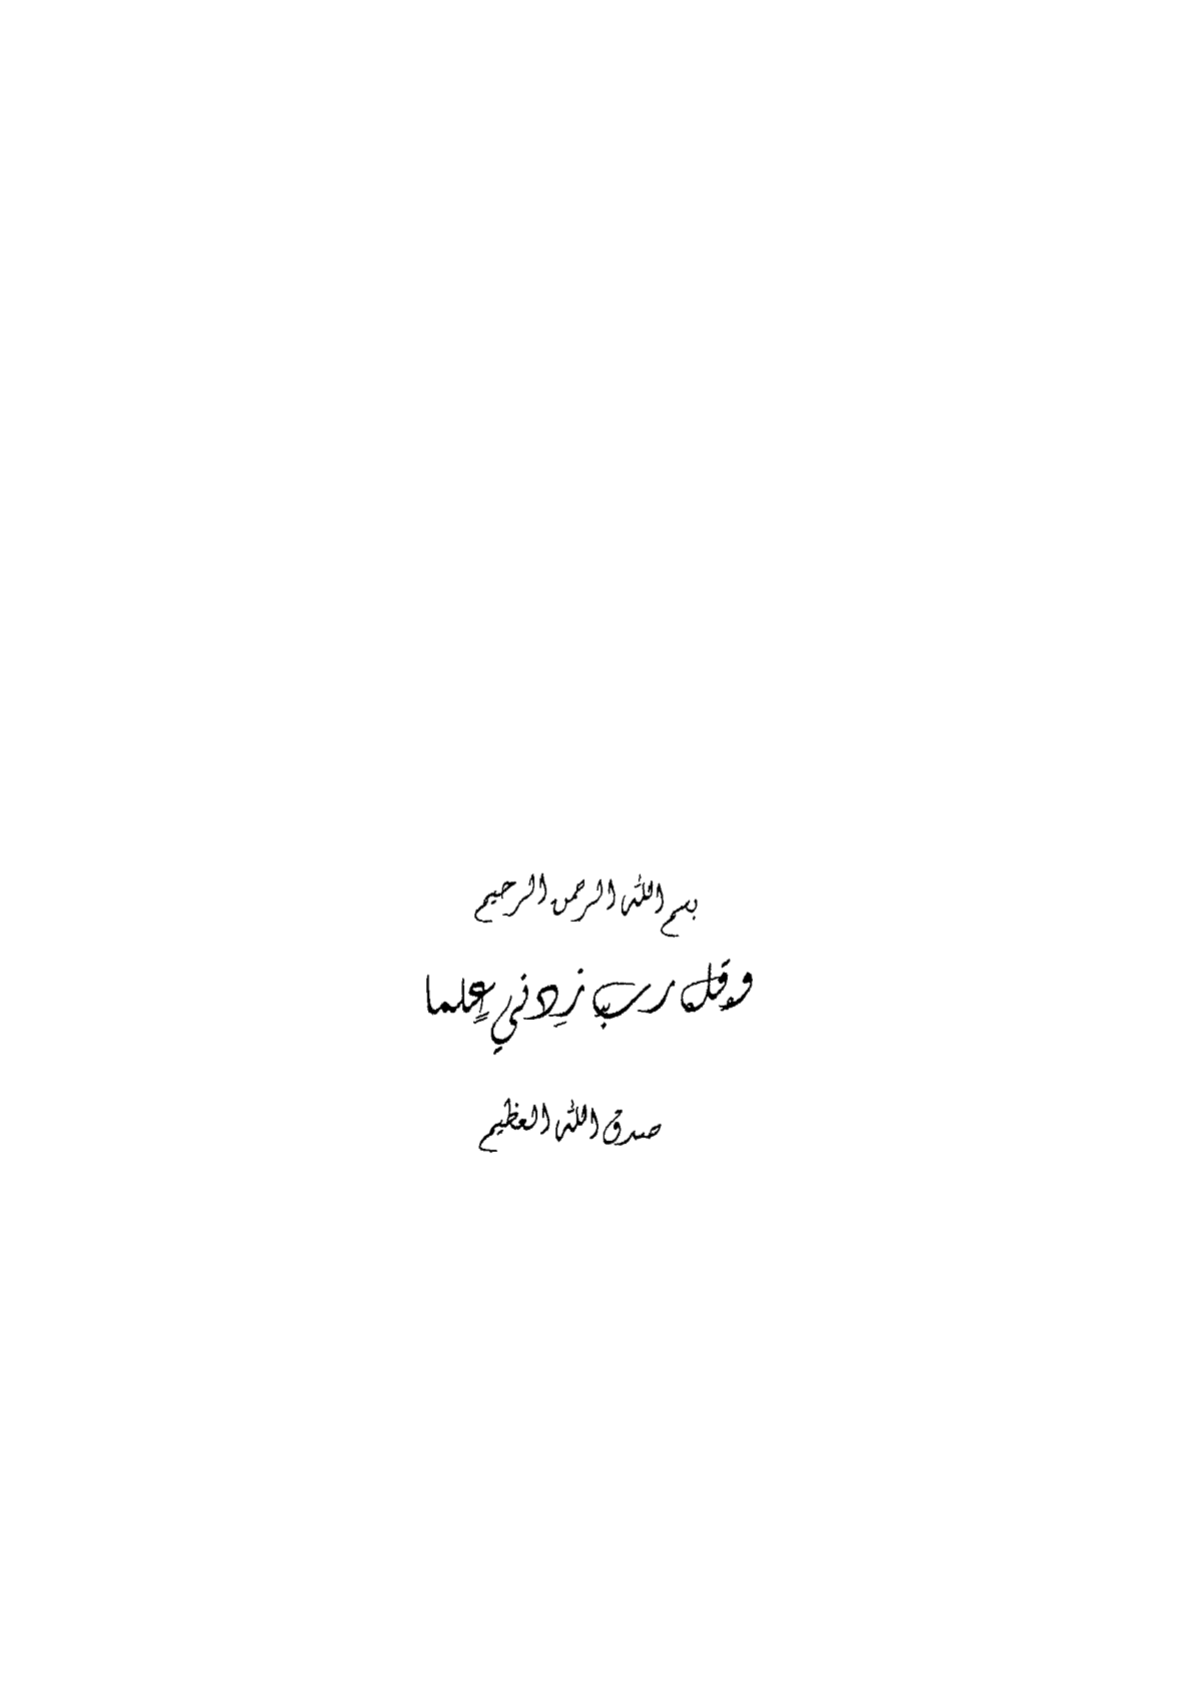 بسم الله الرحمن الرحيم
وقل رب زِدني عِلما
صدق الله العظيم